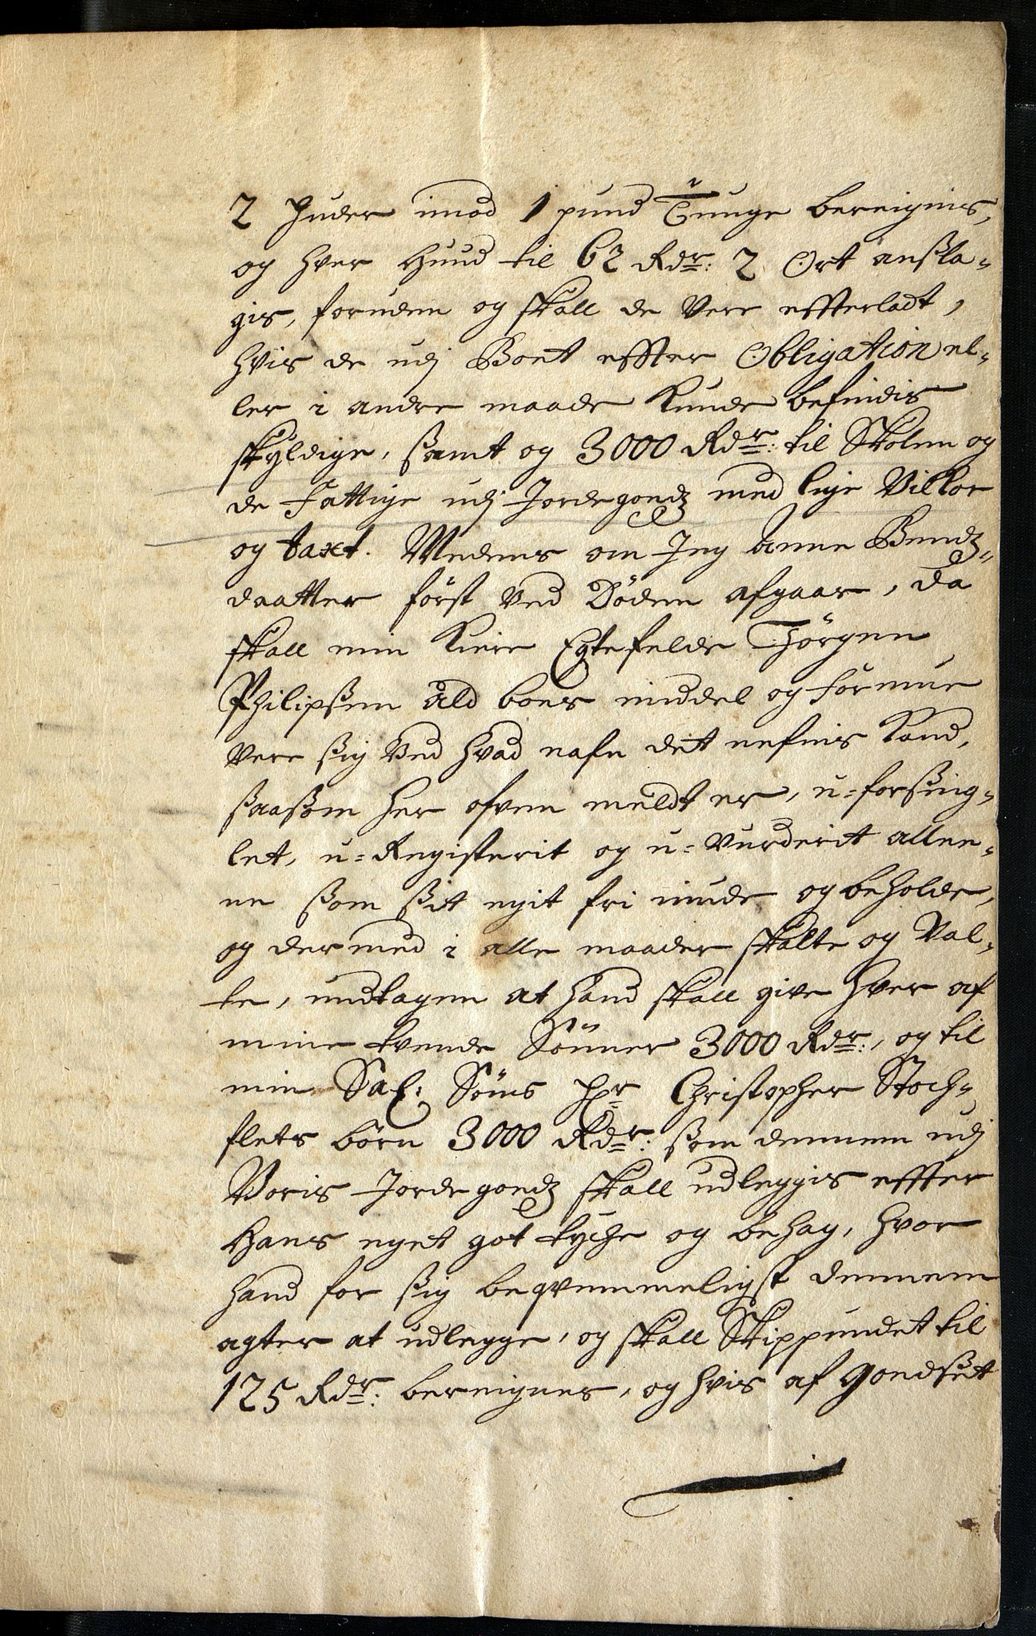 2 Huder imod 1 pund Tunge bereignis,
og hver Huud til 62 Rdr: 2 Ort ansla-
gis, foruden og skall de Vere effterladt,
hvis de udj Boet effter Obligation el-
ler i andre maade Kunde befindis
skyldige, samt og 3000 Rdr: til Skolen og
de Fattige udj Jordegoedz med lige Villkor
og taxt. Medens om Jeg Anne Bendz-
daatter først Ved Døden afgaar, da
skall min Kiere Egtefelde Jørgen
Philipsen ald boes middel og formue
Vere sig Ved hvad nafn det nefnis Kand,
saasom her ofven meldt er, u-forseig-
let, u-Registerit og u-Vurderit allee-
ne som sit egit fri niude og beholde,
og dermed i alle maader skalte og Val-
te, undtagen at hand skall give hver af
mine tvende Sønner 3000 Rdr:, og til
min Sal: Søns Hr Christopher Stoch-
flets børn 3000 Rdr: som dennem udj
Voris Jordegoedz skall udleggis effter
Hans eget got tyche og behag, hvor
hand for sig beqvemmeligst dennem
agter at udlegge, og skall Skippundet til
125 Rdr: bereignes, og hvis af goedset